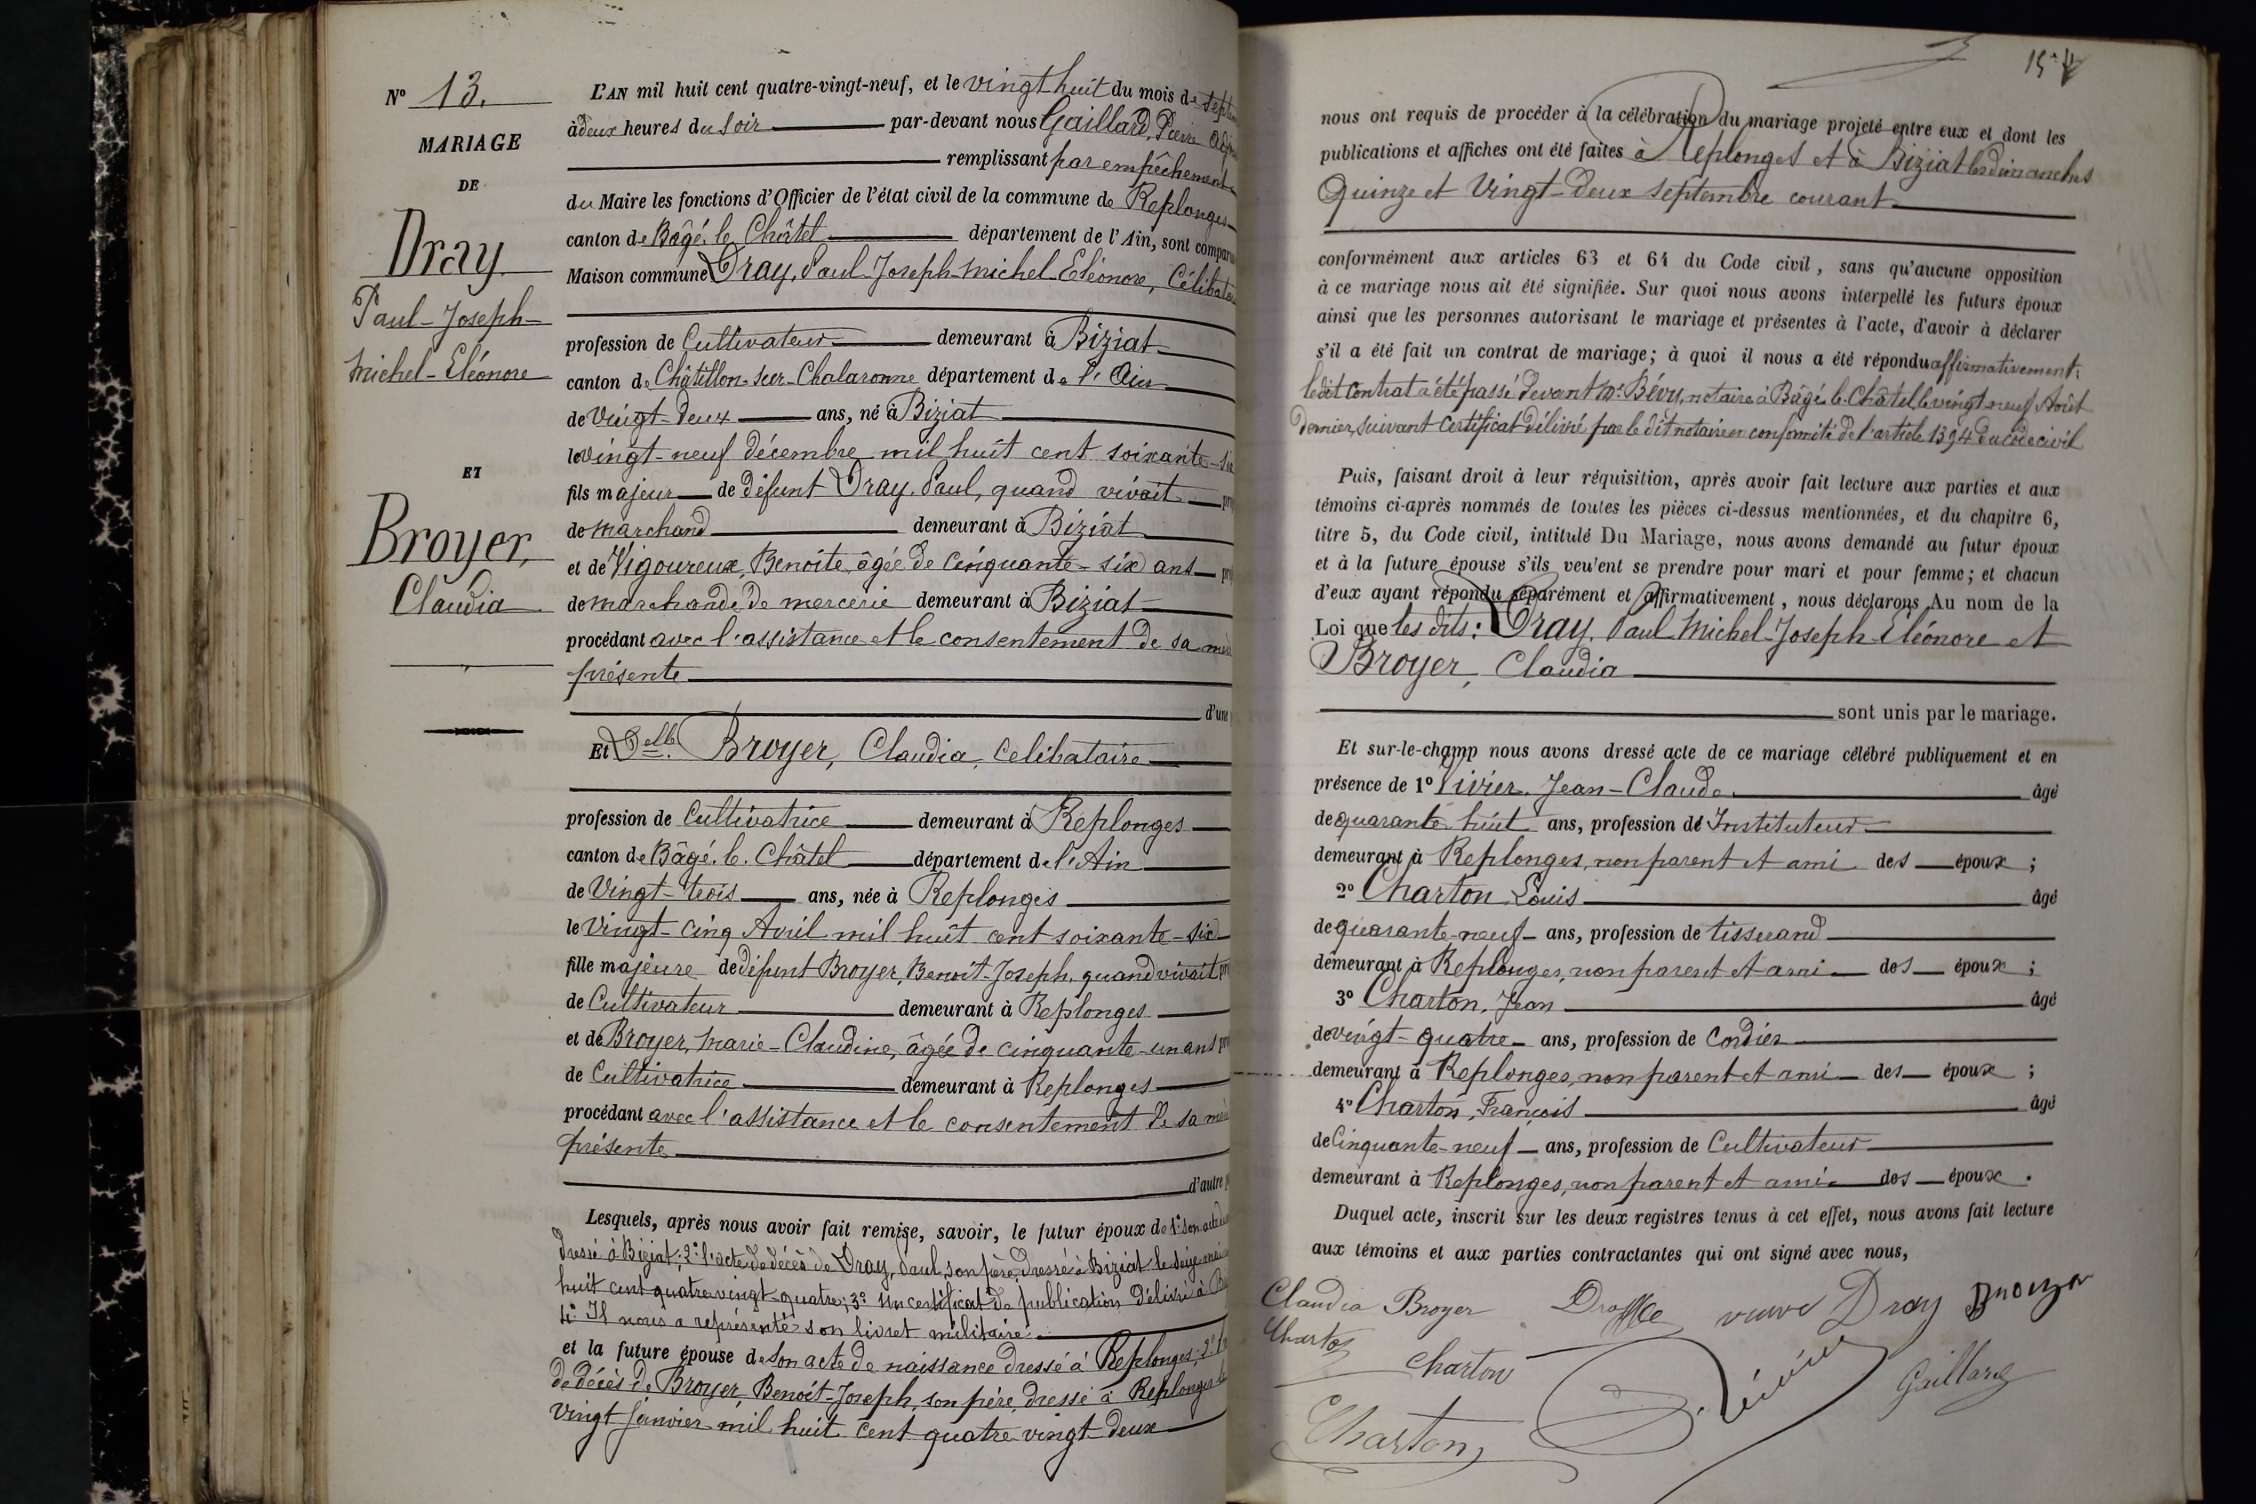 N° 13.
MARIAGE
DE
Dray
Paul-Joseph-
Michel-Eléonore
ET
Broyer,
Claudia
L'AN mil huit cent quatre-vingt-neuf, et le vingt huit du mois de
à deux heures du soir par-devant nous Gaillard,
remplissant par empêchement
du Maire les fonctions d'Officier de l'état civil de la commune de Replonges
canton de Bâgé-le-Châtel département de l'Ain, sont
Maison commune Dray, Paul-Joseph-Michel-Eléonore,
profession de Cultivateur demeurant à Biziat
canton de Châtillon-sur-Chalaronne département de l'Ain
de Vingt-deux ans, né à Biziat
le vingt-neuf décembre mil huit cent soixante-
fils majeur de défunt Dray, Paul, quand vivait
de marchand demeurant à Biziat
et de Vigoureux, Benoite, âgée de cinquante-six ans
de marchande de mercerie demeurant à Biziat
procédant avec l'assistance et le consentement de sa
présente
d'une
Et Delle Broyer, Claudia, Célibataire
profession de Cultivatrice demeurant à Replonges
canton de Bâgé-le-Châtel département de l'Ain
de Vingt-trois ans, née à Replonges
le Vingt-cinq Avril mil huit cent soixante-six
fille majeure de défunt Broyer, Benoit-Joseph, quand vivait
de Cultivateur demeurant à Replonges
et de Broyer, Marie-Claudine, âgée de cinquante-un ans
de Cultivatrice demeurant à Replonges
procédant avec l'assistance et le consentement de sa
présente
d'autre
Lesquels, après nous avoir fait remise, savoir, le futur époux de 1° son acte
dressé à Biziat; 2° l'acte de décès de Dray, Paul, son père, dressé à Biziat le
huit cent quatre vingt quatre; 3° Un certificat de publication délivré à
4° Il nous a représenté son livret militaire
et la future épouse de son acte de naissance dressé à Replonges; 2°
de décès de Broyer, Benoit-Joseph, son père, dressé à Replonges le
vingt janvier mil huit cent quatre vingt-deux
15
nous ont requis de procéder à la célébration du mariage projeté entre eux et dont les
publications et affiches ont été faites à Replonges et à Biziat les dimanches
Quinze et Vingt-deux septembre courant
conformément aux articles 63 et 64 du Code civil, sans qu'aucune opposition
à ce mariage nous ait été signifiée. Sur quoi nous avons interpellé les futurs époux
ainsi que les personnes autorisant le mariage et présentes à l'acte, d'avoir à déclarer
s'il a été fait un contrat de mariage; à quoi il nous a été répondu affirmativement;
ledit contrat a été passé devant Me Bévy, notaire à Bâgé-le-Châtel, le vingt neuf Août
dernier, suivant certificat délivré par le dit notaire en conformité de l'article 1394 du code civil
Puis, faisant droit à leur réquisition, après avoir fait lecture aux parties et aux
témoins ci-après nommés de toutes les pièces ci-dessus mentionnées, et du chapitre 6,
titre 5, du Code civil, intitulé Du Mariage, nous avons demandé au futur époux
et à la future épouse s'ils veulent se prendre pour mari et pour femme; et chacun
d'eux ayant répondu séparément et affirmativement, nous déclarons Au nom de la
Loi que les dits: Dray, Paul Michel-Joseph-Eléonore et
Broyer, Claudia
sont unis par le mariage.
Et sur-le-champ nous avons dressé acte de ce mariage célébré publiquement et en
présence de 1° Vivier, Jean-Claude âgé
de quarante huit ans, profession de Instituteur
demeurant à Replonges, non parent et ami des époux;
2° Charton, Louis âgé
de quarante-neuf ans, profession de tisserand
demeurant à Replonges, non parent et ami des époux;
3° Charton, Jean âgé
de vingt-quatre ans, profession de Cordier
demeurant à Replonges, non parent et ami des époux;
4° Charton, François âgé
de Cinquante-neuf ans, profession de Cultivateur
demeurant à Replonges, non parent et ami des époux.
Duquel acte, inscrit sur les deux registres tenus à cet effet, nous avons fait lecture
aux témoins et aux parties contractantes qui ont signé avec nous,
Claudia Broyer veuve Dray Broyer
Charton
Charton Vivier Gaillard
Charton